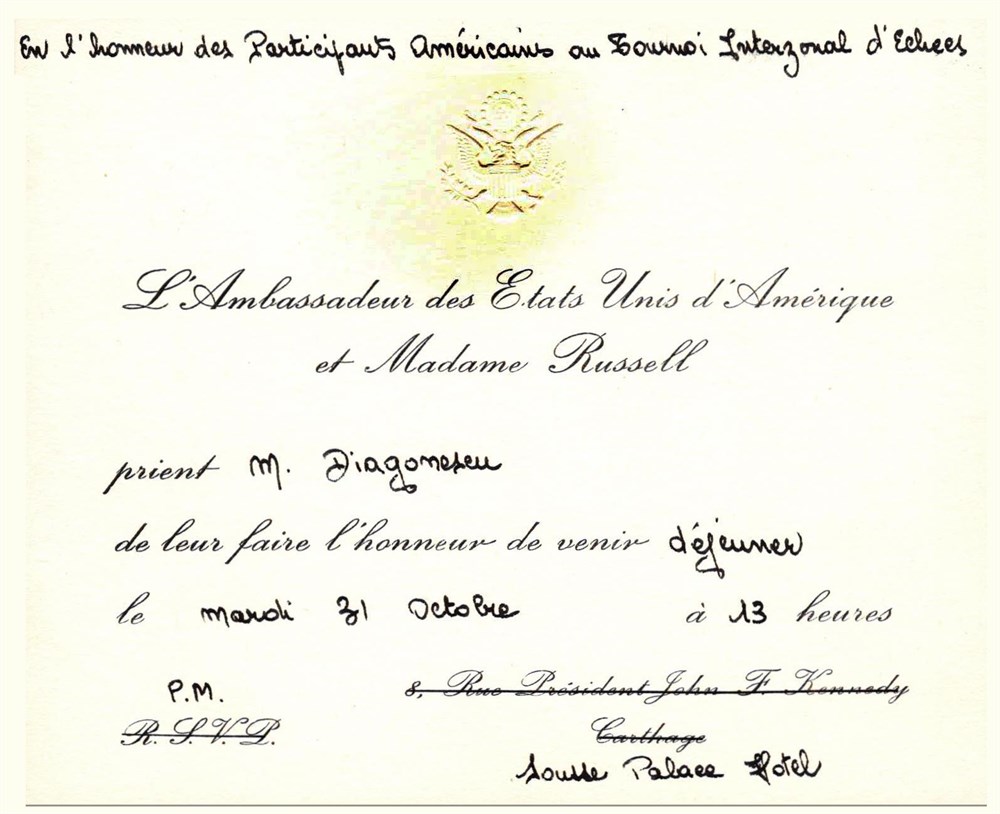 En l'honneur des Participants Américains au Tournoi Interzonal d'Echecs
L'Ambassadeur des Etats Unis d'Amérique
et Madame Russell
prient M. Diagonescu
de leur faire l'honneur de venir déjeuner
le mardi 31 Octobre à 13 heures
P.M. 8, Rue Président John F. Kennedy
R. S. V. P. Carthage
Sousse Palace Hotel